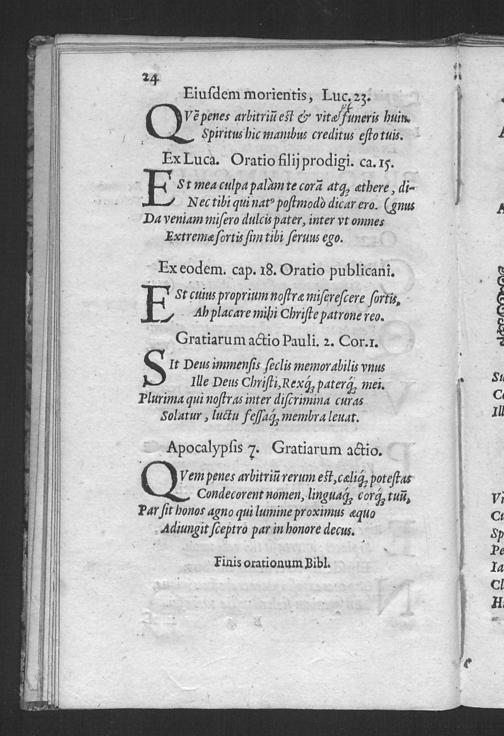 24
Eiuſdem morientis, Luc. 23.
QVē penes arbitriū eſt & vitæ funeris huius
Spiritus hic manibus creditus eſto tuis.
Ex Luca. Oratio filij prodigi. ca. 15.
ESt mea culpa palàm te corā atq; æthere, di-
Nec tibi qui natꝰ poſtmodò dicar ero. (gnus
Da veniam miſero dulcis pater, inter vt omnes
Extremæ ſortis ſim tibi ſeruus ego.
Ex eodem. cap. 18. Oratio publicani.
ESt cuius proprium noſtræ miſereſcere ſortis,
Ah placare mihi Chriſte patrone reo.
Gratiarum actio Pauli. 2. Cor. 1.
SIt Deus immenſis ſeclis memorabilis vnus
Ille Deus Chriſti, Rexq́; paterq́; mei.
Plurima qui noſtras inter diſcrimina curas
Solatur, luctu feſſaq́; membra leuat.
Apocalypſis 7. Gratiarum actio.
QVem penes arbitriū rerum eſt, cæliq́; poteſtas
Condecorent nomen, linguaq́; corq́; tuū,
Par ſit honos agno qui lumine proximus æquo
Adiungit ſceptro par in honore decus.
Finis orationum Bibl.